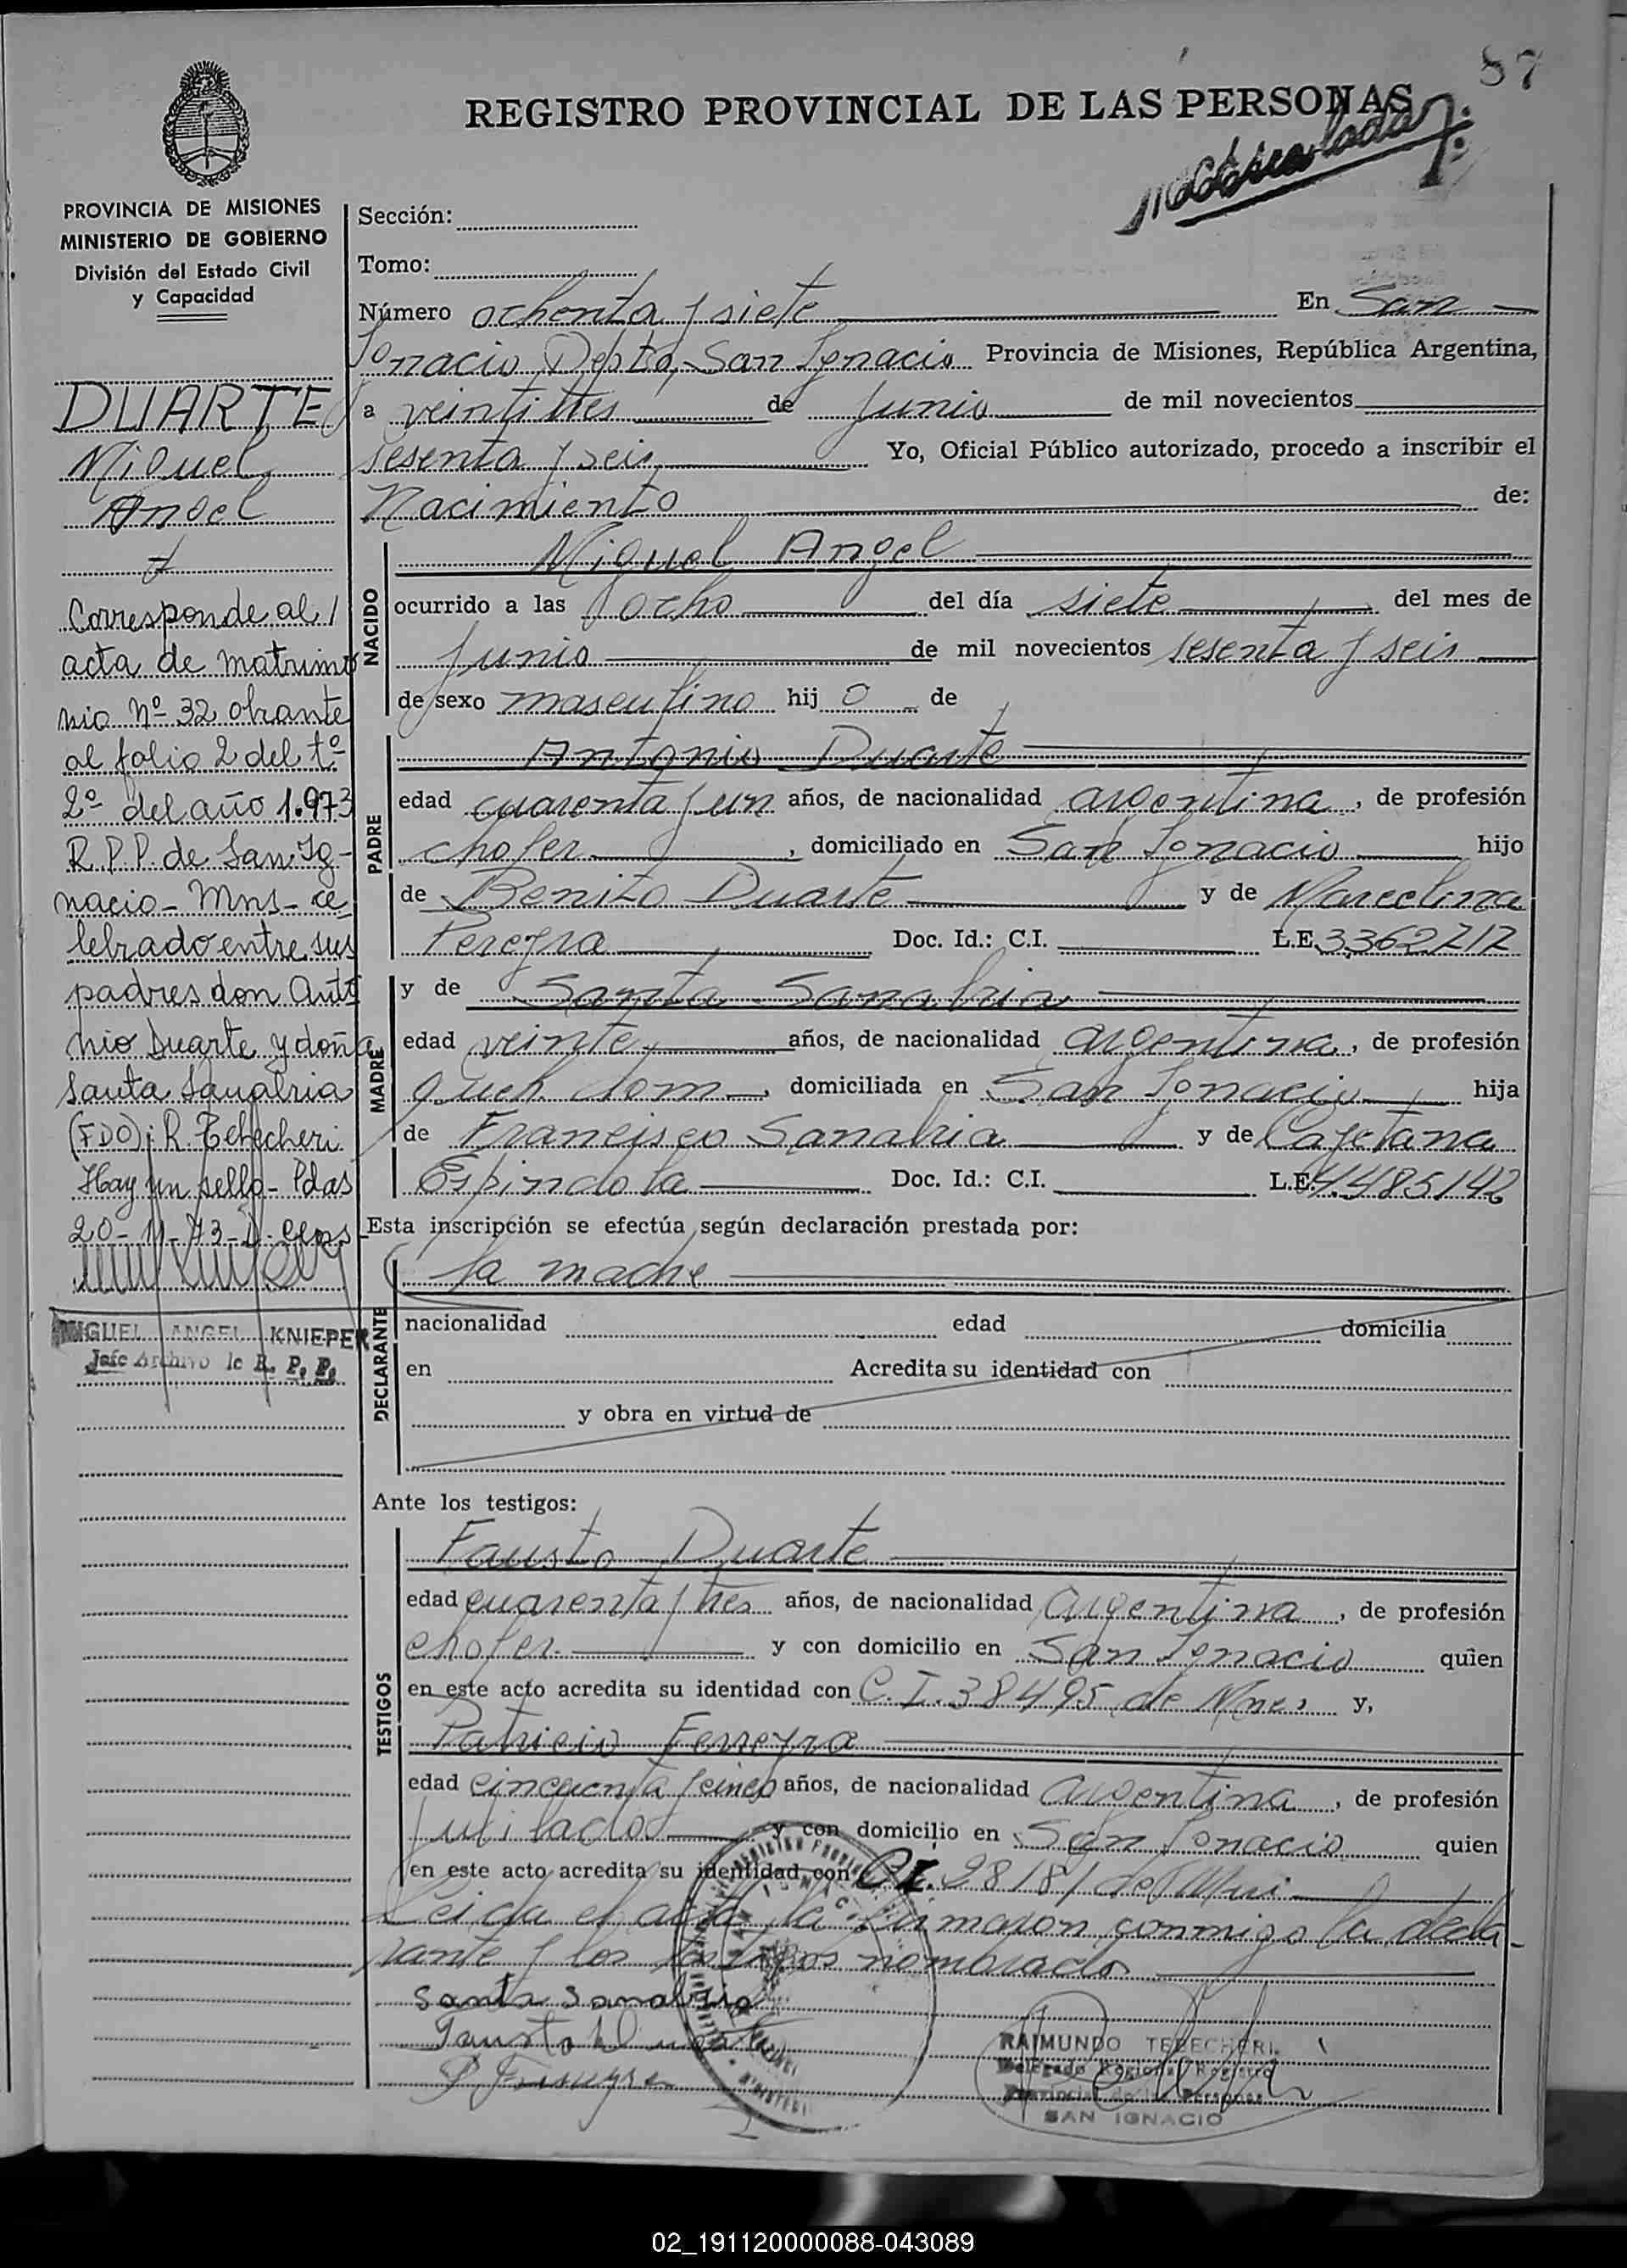 87
REGISTRO PROVINCIAL DE LAS PERSONAS
PROVINCIA DE MISIONES
MINISTERIO DE GOBIERNO
División del Estado Civil
y Capacidad
DUARTE
Miguel
Angel
Corresponde al
acta de matrimo
nio nº 32 obrante
al folio 2 del tº
2º del año 1.973
R.P.P. de San Ig-
nacio - Mns - ce
lebrado entre sus
padres don Anto
nio Duarte y doña
Santa Sanabria
(FDO): R. Tebecheri
Hay un sello - Pdas
20-11-73-
MIGUEL ANGEL KNIEPER
Jefe Archivo R. P. P.
Sección:
Tomo:
Número ochenta y siete En San
Ignacio, Depto, San Ignacio Provincia de Misiones, República Argentina,
a veintitres de Junio de mil novecientos
sesenta y seis Yo, Oficial Público autorizado, procedo a inscribir el
Nacimiento de:
NACIDO
Miguel Angel
ocurrido a las ocho del día siete del mes de
Junio de mil novecientos sesenta y seis
de sexo masculino hij o de
PADRE
Antonio Duarte
edad cuarenta y un años, de nacionalidad argentina, de profesión
chofer, domiciliado en San Ignacio hijo
de Benito Duarte y de Marcelina
Pereyra Doc. Id.: C.I. L.E. 3362717
MADRE
y de Santa Sanabria
edad veinte años, de nacionalidad argentina, de profesión
queh. dom, domiciliada en San Ignacio hija
de Francisco Sanabria y de Cayetana
Espindola Doc. Id.: C.I. L.E. 4.485142
Esta inscripción se efectúa según declaración prestada por:
DECLARANTE
la madre
nacionalidad edad domicilia
en Acredita su identidad con
y obra en virtud de
Ante los testigos:
TESTIGOS
Fausto Duarte
edad cuarenta y tres años, de nacionalidad argentina, de profesión
chofer y con domicilio en San Ignacio quien
en este acto acredita su identidad con C.I. 38495 de Mnes y,
Patricio Ferreyra
edad cincuenta y cinco años, de nacionalidad argentina, de profesión
Jubilado y con domicilio en San Ignacio quien
en este acto acredita su identidad con C.I. 28181 de
Leida el acta, la firmaron conmigo la decla-
rante y los testigos nombrados
Santa Sanabria
Fausto Duarte
P. Ferreyra
RAIMUNDO TEBECHERI
Delegado Regional Registro
Provincial de las Personas
SAN IGNACIO
02_191120000088-043089